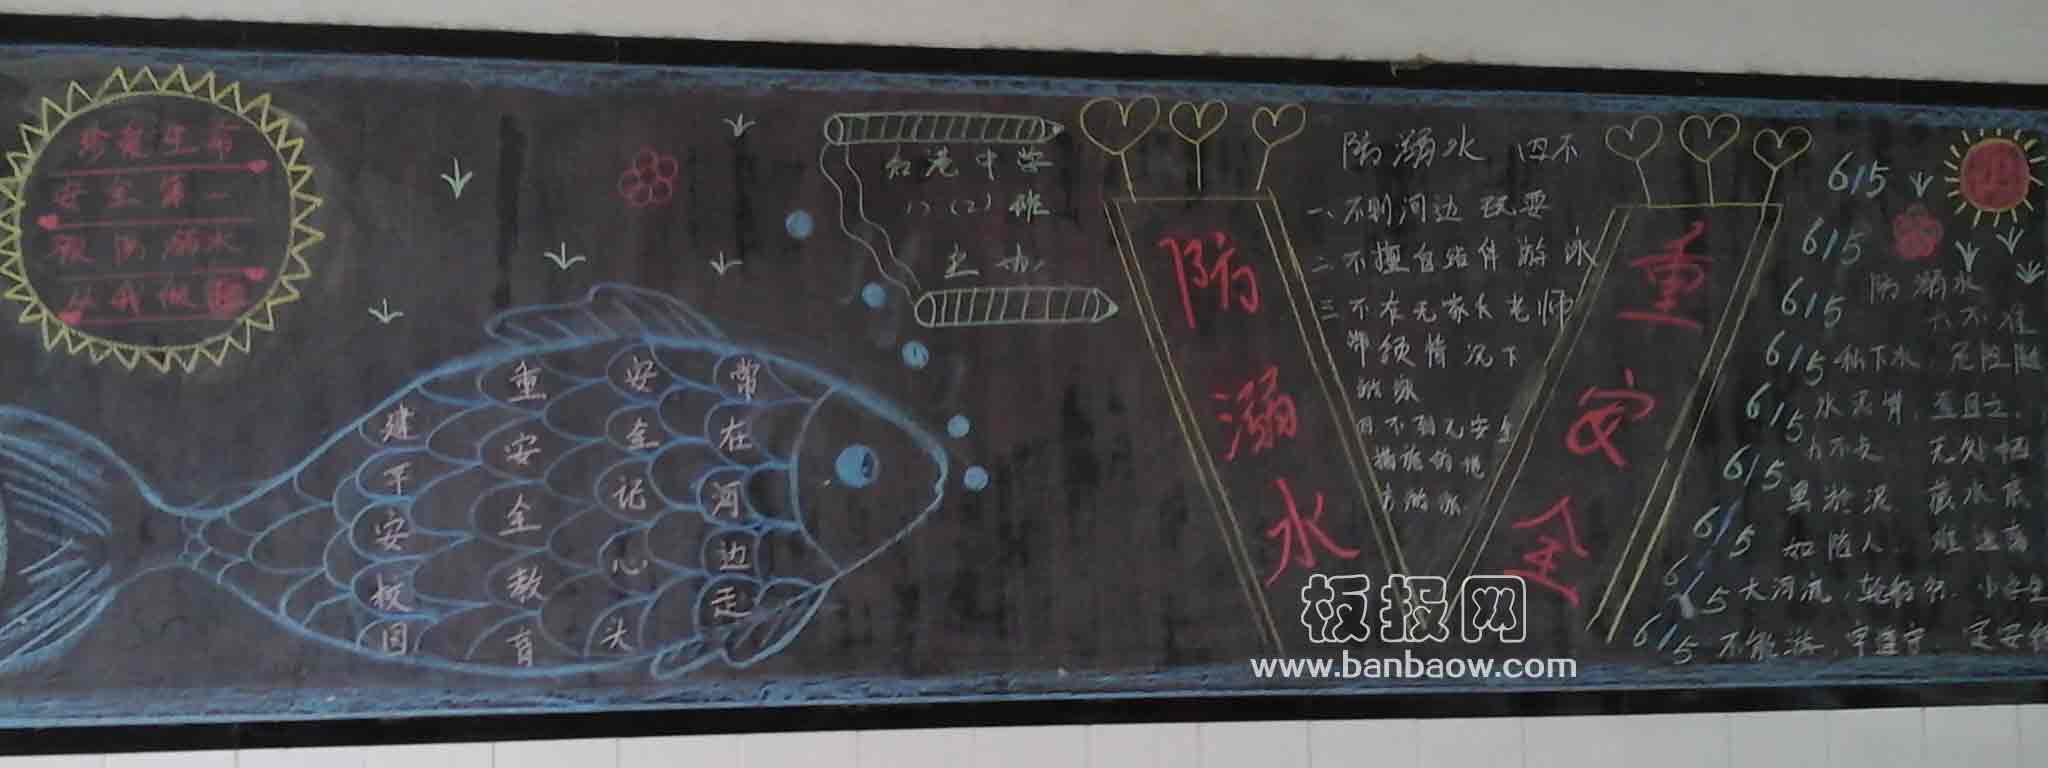 珍爱生命
安全第一
预防溺水
从我做起
常在河边走
安全记心头
重安全教育
建平安校园
港中学
八(2)班
主办
防溺水
重安全
防溺水 四不
一、不到河边玩耍
二、不擅自结伴游泳
三、不在无家长老师
带领情况下
游泳
四不到无安全
措施的地
方游泳
防溺水
六不准
私下水,危险随
水泥滑,
力不支 无处栖
黑淤泥 藏水底
如陷入 难
大河流,轮船
不能游,牢遵守
615
615
615
615
615
615
615
615
615
板报网
www.banbaow.com